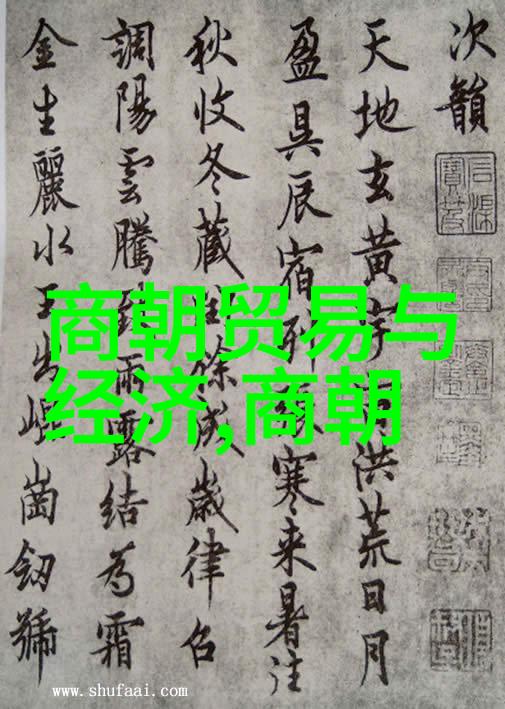 次韻
天地玄黃宇洪荒日月
盈昃辰宿列寒来暑往
秋收冬藏餘成歲律召
調陽雲騰雨露結為霜
金生麗水玉出崐崗劒號
商朝贸易与
经济,商朝
www.shufaai.com